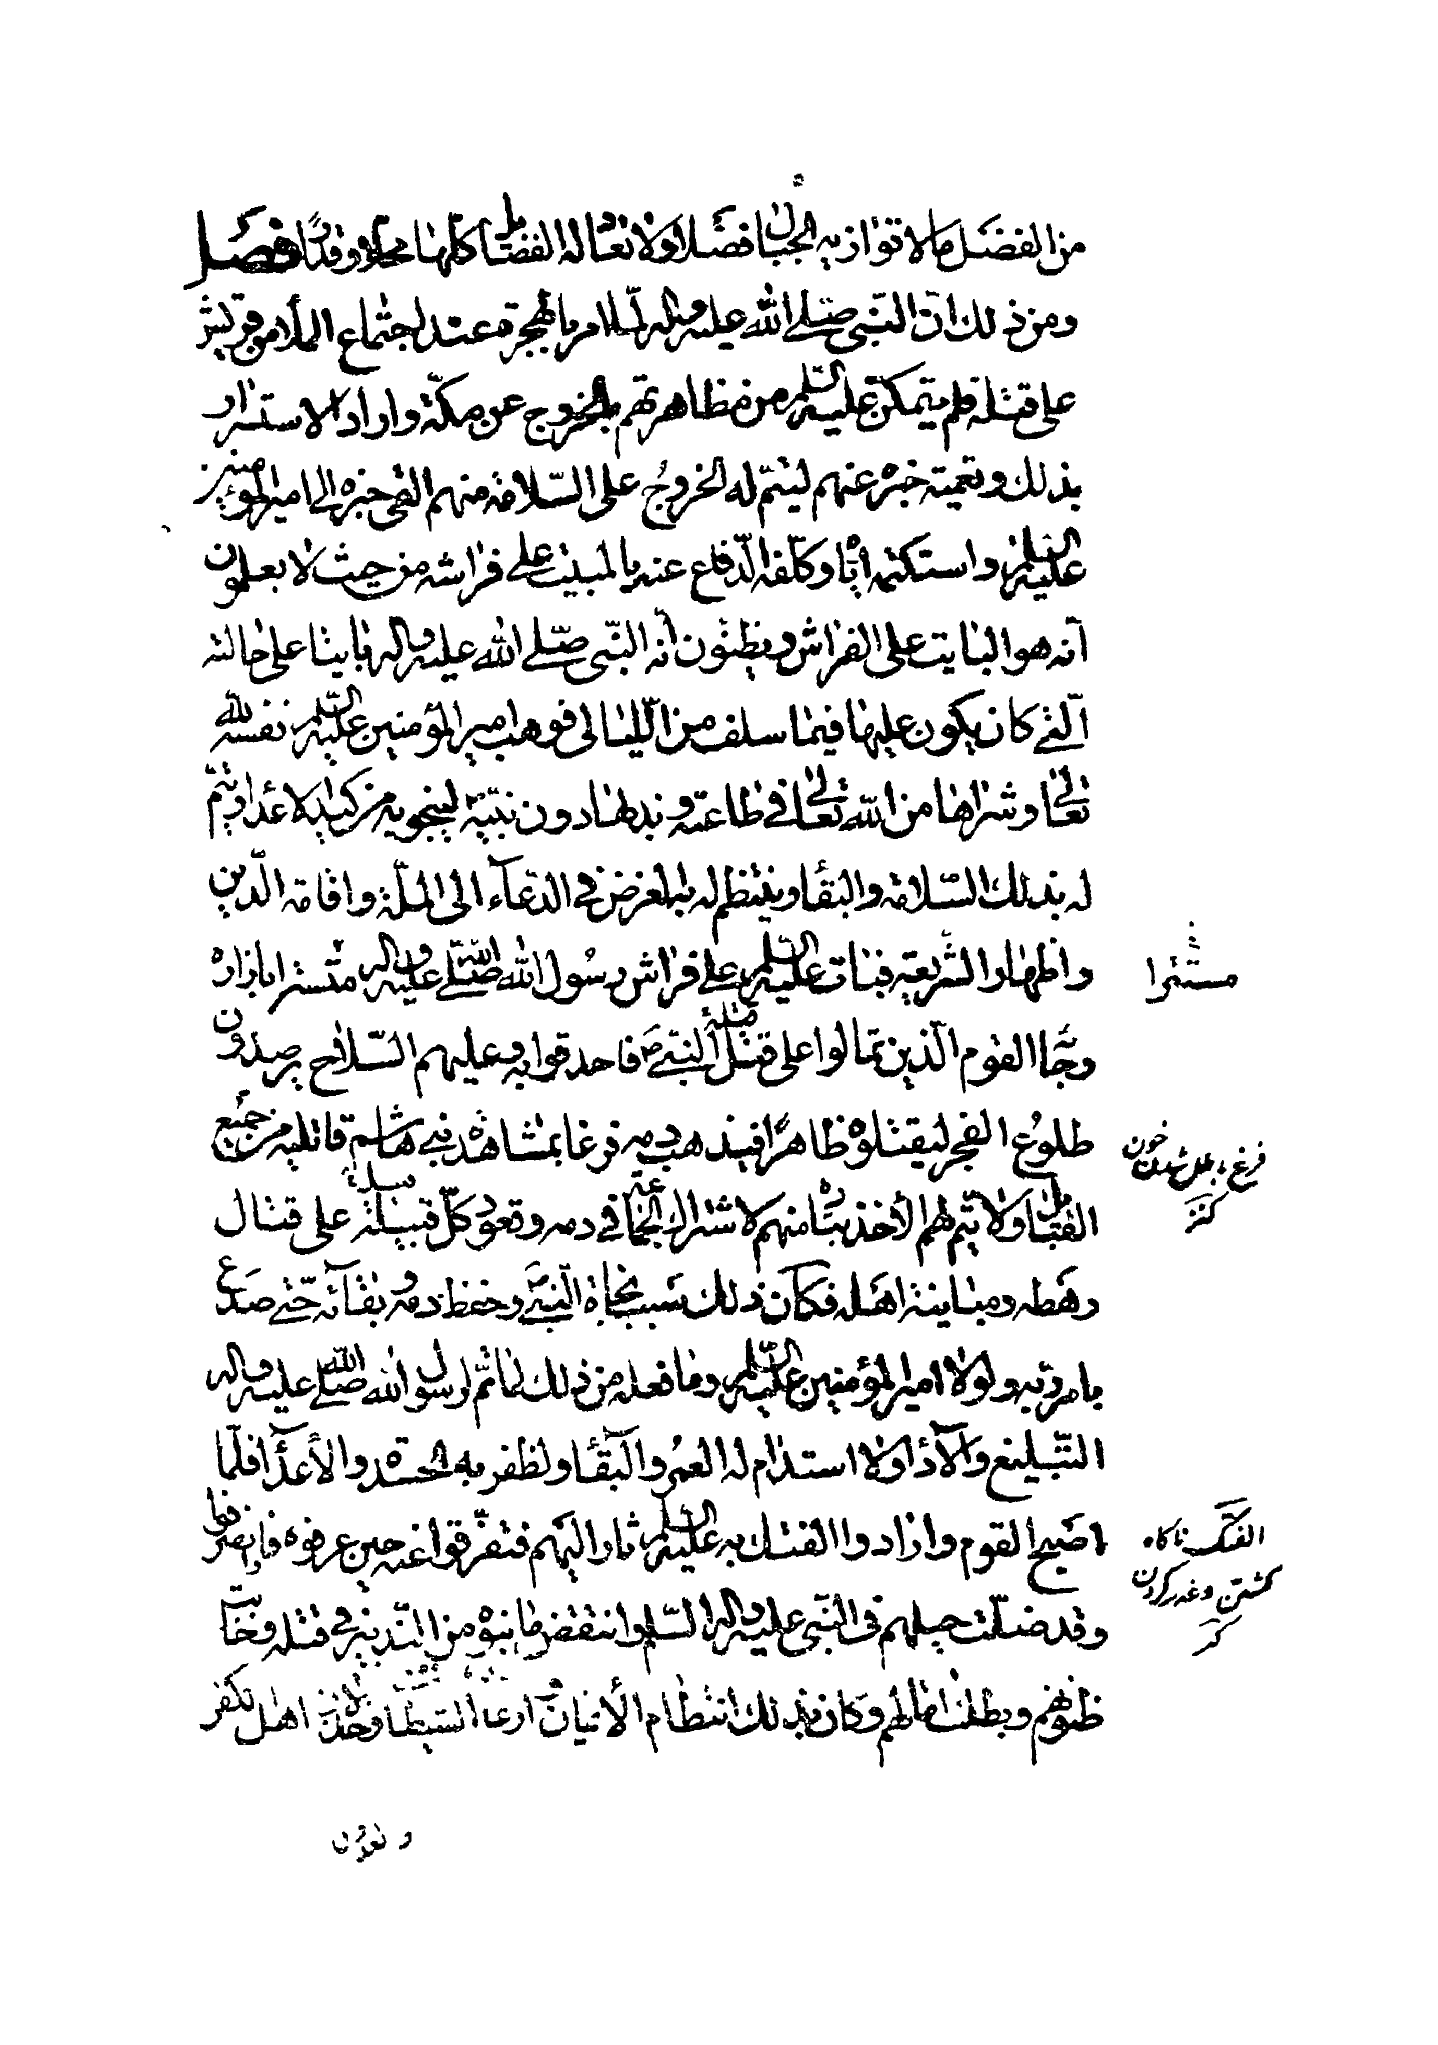 من الفضل ما لا توازيه الجبال فضلا ولا تعادله الفضائل كلها محلا وقدرا فصل
ومن ذلك ان النبى صلى الله عليه وآله لما امر بالهجرة عند اجتماع الملأ من قريش
على قتله فلم يتمكن عليه السلم من مظاهرتهم بالخروج عن مكة واراد الاستسرار
بذلك وتعمية خبره عنهم ليتم له الخروج على السلامة منهم القى خبره الى امير المؤمنين
عليه السلم واستكتمه اياه وكلفه الدفاع عنه بالمبيت على فراشه من حيث لا يعلمون
انه هو البايت على الفراش ويظنون انه النبى صلى الله عليه وآله بايتا على حالته
التى كان يكون عليها فيما سلف من الليالى فوهب امير المؤمنين عليه السلم نفسه لله
تعالى وشراها من الله تعالى فى طاعته وبذلها دون نبيه لينجو به من كيد الاعداء ويتم
له بذلك السلامة والبقاء وينتظم له به الغرض فى الدعاء الى الملة واقامة الدين
واظهار الشريعة فبات عليه السلم على فراش رسول الله صلى الله عليه وآله متسترا بازاره
مستترا
وجاء القوم الذين تمالوا على قتل النبى ص فاحدقوا به وعليهم السلاح يرصدون
طلوع الفجر ليقتلوه ظاهرا فيذهب دمه فرغا بمشاهدة بنى هاشم قاتليه من جميع
فرغ باطل شدن خون
كنز
القبائل ولا يتم لهم الأخذ بثاره منهم لاشتراك الجماعة فى دمه وقعود كل قبيلة على قتال
رهطه ومباينة اهله فكان ذلك سبب نجاة النبى ص وحفظ دمه وبقائه حتى صدع
بامر ربه ولولا امير المؤمنين عليه السلم وما فعله من ذلك لما تم لرسول الله صلى الله عليه وآله
التبليغ والأداء ولا استدام له العمر والبقاء ولظفر به الحسدة والأعداء فلما
اصبح القوم وارادوا الفتك به عليه السلم ثار اليهم فتفرقوا عنه حين عرفوه فانصرفوا
الفتك ناكاه
كشتن وغدر كردن
كنز
وقد ضلت حيلهم فى النبى عليه وآله السلم وانتقض ما بنوه من التدبير فى قتله وخابت
ظنونهم وبطلت امالهم وكان بذلك انتظام الأيمان وارغام الشيطان وخذلان اهل الكفر